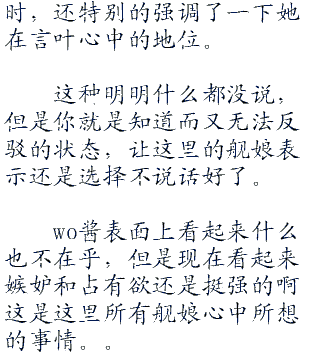 时，还特别的强调了一下她
在言叶心中的地位。
这种明明什么都没说，
但是你就是知道而又无法反
驳的状态，让这里的舰娘表
示还是选择不说话好了。
wo酱表面上看起来什么
也不在乎，但是现在看起来
嫉妒和占有欲还是挺强的啊
这是这里所有舰娘心中所想
的事情。。